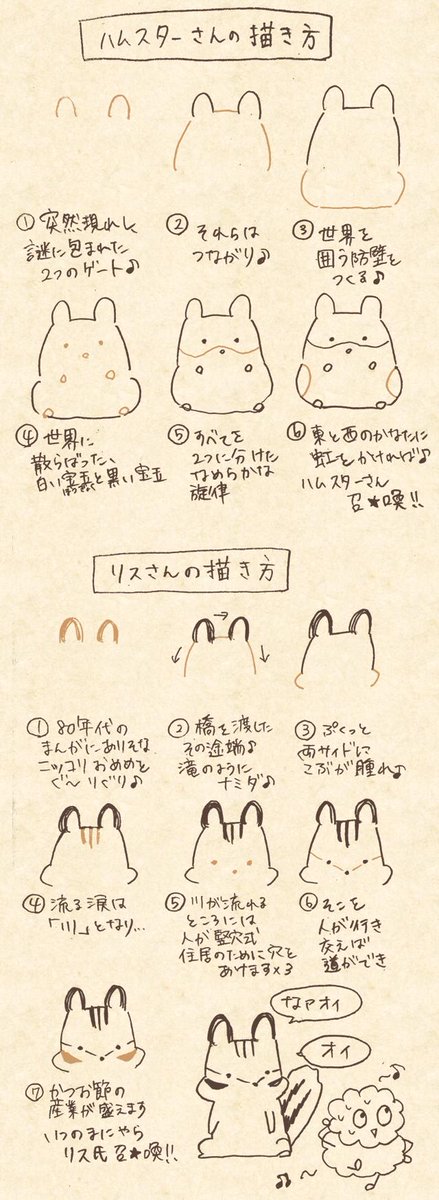 ハムスターさんの描き方
① 突然現れし
謎に包まれた
2つのゲート♪
② それらは
つながり♪
③ 世界を
囲う防壁を
つくる♪
④ 世界に
散らばった、
白い宝玉と黒い宝玉
⑤ すべてを
2つに分けた
なめらかな
旋律
⑥ 東と西のかなたに
虹をかければ♪
ハムスターさん
召★喚!!
リスさんの描き方
① 80年代の
まんがにありそな
ニッコリおめめを
ぐ〜りぐり♪
② 橋を渡した
その途端♪
滝のように
ナミダ♪
③ ぷくっと
両サイドに
こぶが腫れ♪
④ 流る涙は
「川」となり...
⑤ 川が流れる
ところには
人が竪穴式
住居のために穴を
あけます×3
⑥ そこを
人が行き
交えば
道ができ
⑦ かつお節の
産業が盛えます
いつのまにやら
リス氏召★喚!!
なァオイ
オイ